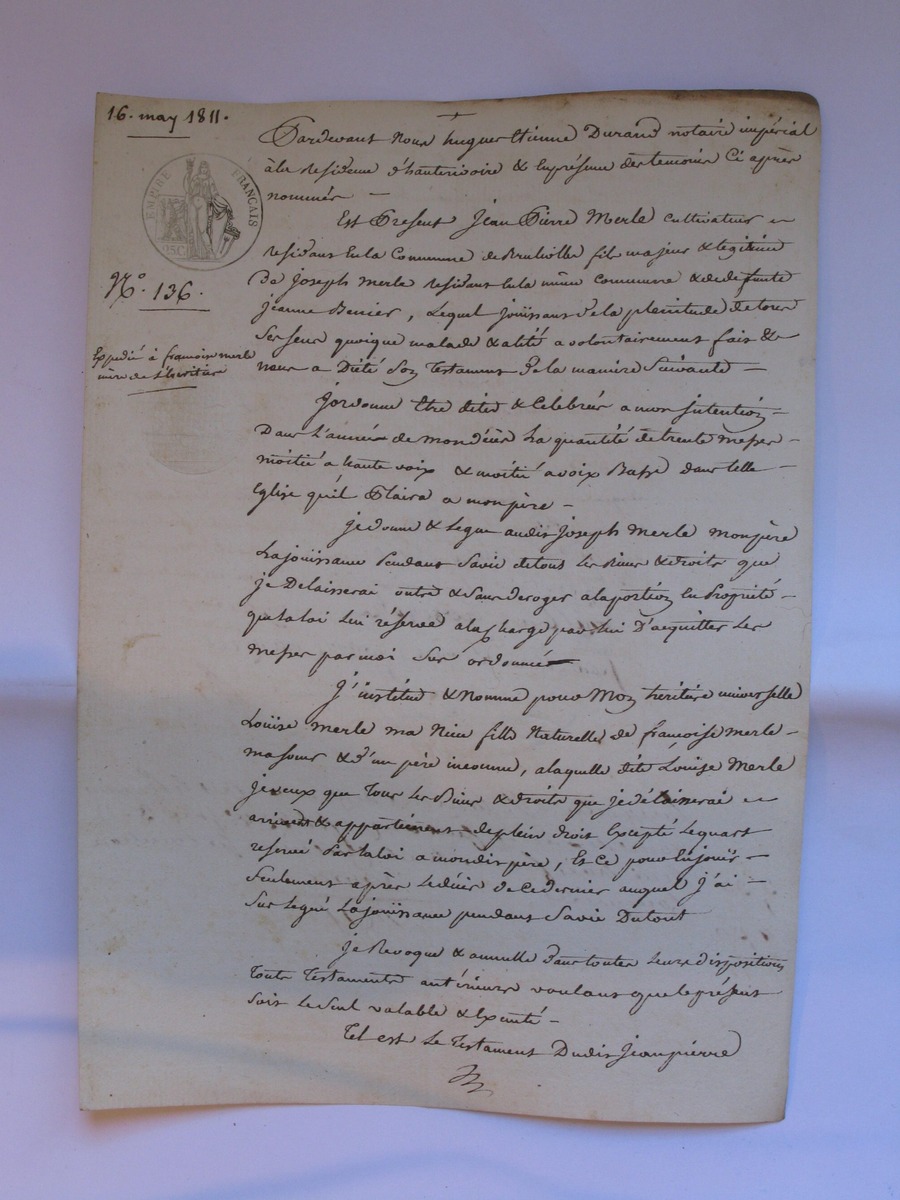 16. may 1811.
EMPIRE FRANÇAIS
N.° 136.
Expedié à françoise merle
mère de l'héritière
Pardevant Nous hugues Etienne Durand notaire impérial
à la residence d'hauterivoire & en présence des temoins ci après
nommés —
Est Present Jean Pierre Merle cultivateur
residant en la Commune de Brulliolle fils majeur & legitime
De Joseph Merle residant en la même commune & de defunte
jeanne , Lequel joüissant de la plenitude de tous
ses sens quoique malade & alité a volontairement fait &
nous a Dicté Son Testament de la maniere Suivante —
J'ordonne Etre dites & Celebrées a mon jntention —
Dans L'année de mon décès La quantité de trente messes —
moitié a haute voix & moitié a voix Basse dans telle —
Eglise qu'il Plaira a mon père —
je donne & Legue audit Joseph Merle mon père
La joüissance Pendant Savie de tous Les Biens & droits que
je Delaisserai outre & Sans deroger a la portion en Propriété —
que la loi Lui réserve a la Charge par lui D'acquitter Les
messes par moi Sus ordonnées
J'institue & Nomme pour Mon heritière universelle
Louise merle ma Niece fille Naturelle de françoise merle —
ma soeur & d'un père inconnu, a laquelle dite Louise Merle
je veux que Tous Les Biens & droits que je délaisserai
arrivent & appartiennent de plein droit Excepté Le quart
reservé Par la loi a mondit père, Et Ce pour En joüir —
Seulement après Le décès de Ce dernier auquel j'ai —
Sus Legué La joüissance pendant Savie Du tout
Je Revoque & annulle dans toutes Leurs dispositions
Tous Testaments antérieurs voulant que le présent
Soit Le Seul valable & Exécuté —
Tel est Le Testament Dudit Jean pierre